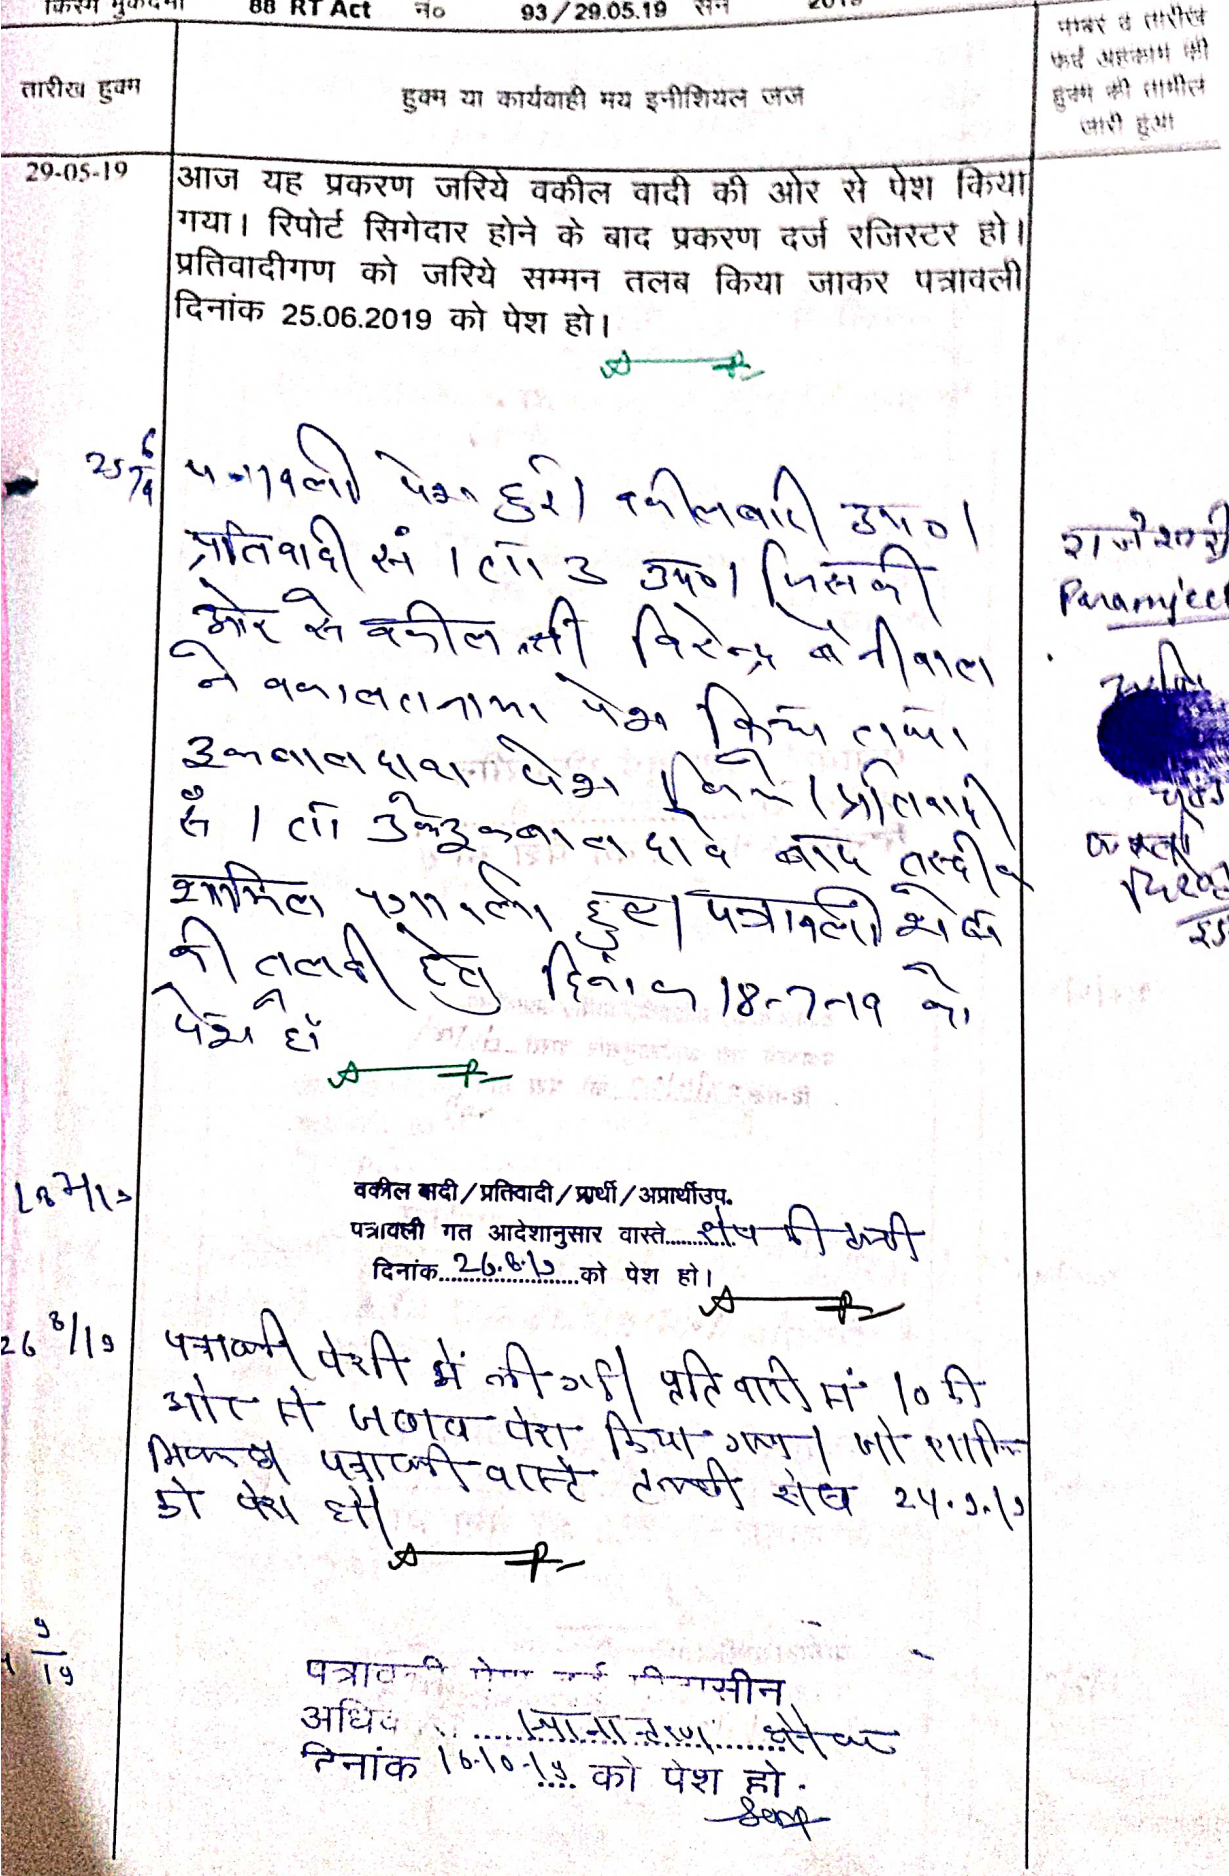 किस्म मुकदमा 88 RT Act नं० 93/29.05.19 सन 2019
तारीख हुक्म
हुक्म या कार्यवाही मय इनीशियल जज
नम्बर व तारीख
फर्द अहकाम की
हुक्म की तामील
जारी हुआ
29-05-19
आज यह प्रकरण जरिये वकील वादी की ओर से पेश किया
गया। रिपोर्ट सिगेदार होने के बाद प्रकरण दर्ज रजिस्टर हो।
प्रतिवादीगण को जरिये सम्मन तलब किया जाकर पत्रावली
दिनांक 25.06.2019 को पेश हो।
25/6/19
पत्रावली पेश हुई। वकील वादी उप०।
प्रतिवादी सं 1 ता 3 उप०। जिसकी
ओर से वकील श्री विरेन्द्र बेनीवाल
ने वकालतनामा पेश किया तथा
इकबाल दावा पेश किये। प्रतिवादी
सं 1 ता 3 के इकबाल दावे बाद तस्दीक
शामिल पत्रावली हुए। पत्रावली शेष
की तलबी हेतु दिनांक 18-7-19 को
पेश हो
राजेश्वरी
Paramjeet
18/7/19
वकील वादी/प्रतिवादी/प्रार्थी/अप्रार्थीउप.
पत्रावली गत आदेशानुसार वास्ते........शेष की तलबी
दिनांक..26.8.19..को पेश हो।
26 8/19
पत्रावली पेशी में ली गई। प्रतिवादी सं 10 की
ओर से जवाब पेश किया गया। जो शामिल
मिसल हो पत्रावली वास्ते तलबी शेष 24.9.19
को पेश हो।
9/19
पत्रावली पेश हुई पीठासीन
अधि.......स्थानान्तरण.......होने पर
दिनांक 16-10-19 को पेश हो.